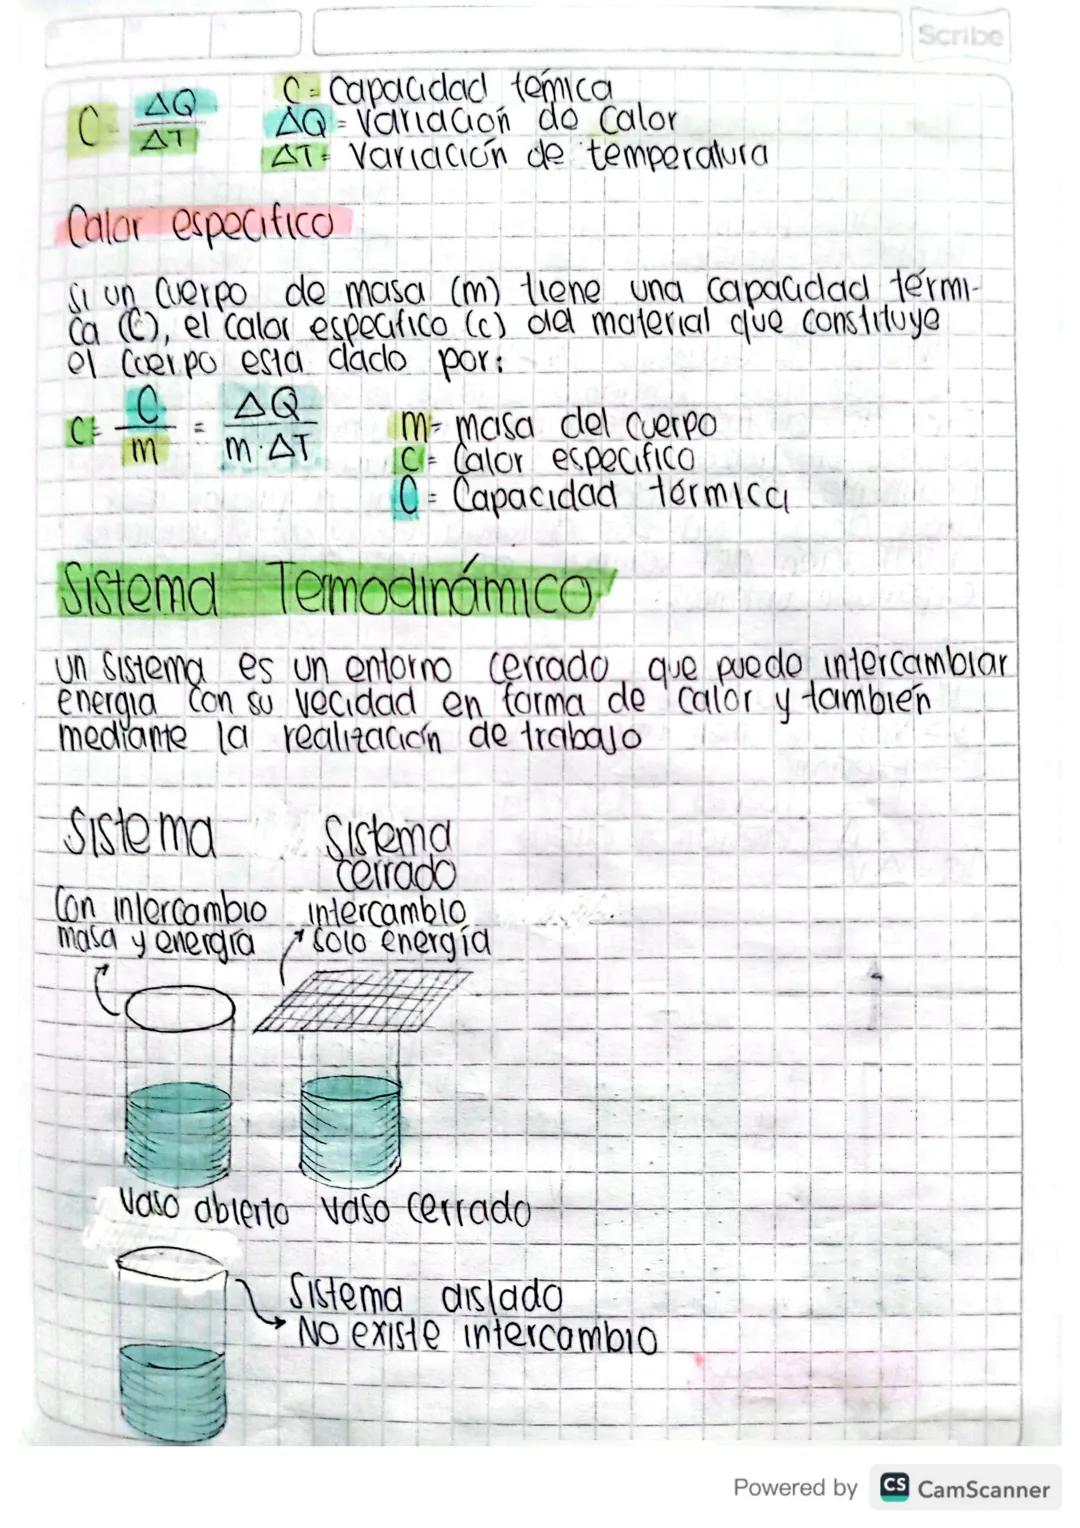 Scribe
C = ΔQ / ΔT
C = Capacidad témica
ΔQ = Variación de Calor
ΔT = Variación de temperatura
Calor especifico
Si un Cuerpo de masa (m) tiene una capacidad térmi-
ca (C), el calor especifico (c) del material que constituye
el Cuerpo esta dado por:
c = C / m = ΔQ / m·ΔT
m = masa del Cuerpo
c = Calor especifico
C = Capacidad térmica
Sistema Termodinámico
un sistema es un entorno cerrado que puede intercambiar
energia con su vecidad en forma de calor y también
mediante la realización de trabajo
Sistema
Con intercambio
masa y energía
Sistema
cerrado
intercambio
solo energía
Vaso abierto
Vaso Cerrado
Sistema aislado
No existe intercambio
Powered by CS CamScanner